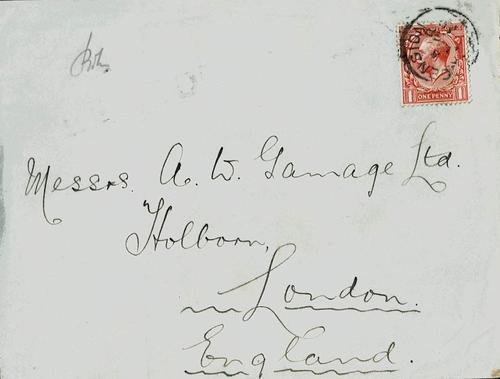 ONE PENNY
Messrs. A. W. Gamage Ltd.
Holborn,
London.
England.